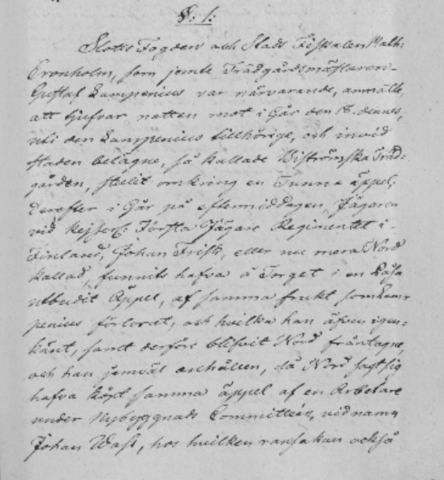 §: 1:
Slotts Fogden och Stads Fiskalen Math:
Cronholm, som jemte Trädgårdsmästaren
Gustaf Lampenius var närvarande, anmälte,
att tjufvar natten mot i Går den 18. dennes,
uti den Lampenius tillhörige, och invid
staden belägne, så kallade Biströmska Träd-
gården, stulit omkring en Tunna äppel,
derefter i Går på eftermiddagen Jägaren
vid Kejserl: Första Jägare Regimentet i
Finland, Johan Frisk, eller nu mera Nord
kallad, funnits hafva å Torget i en
utbudit Äppel, af samma frukt som Lam-
penius förlorat, och hvilka han äfven igen-
känt, samt derföre blifvit Nord fråntagne,
och han jemväl anhållen, då Nord sagt sig
hafva köpt samma äppel af en Arbetare
under Nybyggnads Committén, vid namn
Johan Wast, hos hvilken ransakan också